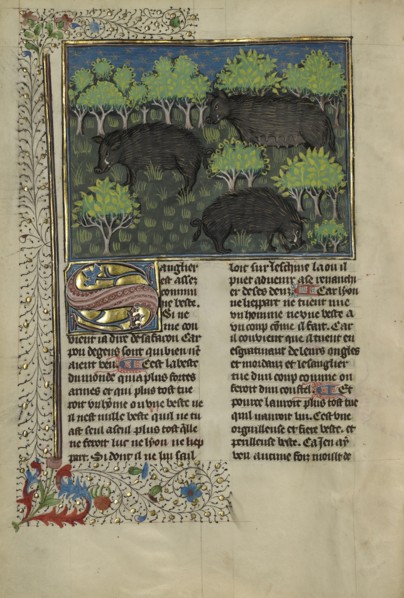 Sanglier
est assez
commu
ne beste.
Si ne
me con
vient ia dire de sa facon. Car
pou de gens sont qui bien nen
aient veu. Cest la beste
du monde qui a plus fortes
armes et qui plus tost tue
roit un home ou une beste ne
il nest nulle beste quil ne tu
ast seul a seul plus tost quelle
ne feroit lui ne lyon ne liep
part. Si dont il ne lui sail
loit sur leschine la ou il
puet advenir a se revanch
er de ses dens. Car lyon
ne lieppart ne tuent mie
un homme ne une beste a
un coup come il fait. Car
il convient que il tuent en
esgratinant de leurs ongles
et mordant et le sanglier
tue dun coup comme on
feroit dun coustel. Et
pource lauroit plus tost tue
quil nauroit lui. Cest une
orguilleuse et fiere beste. et
perilleuse beste. Ca Jen ay
veu aucune foiz moult de